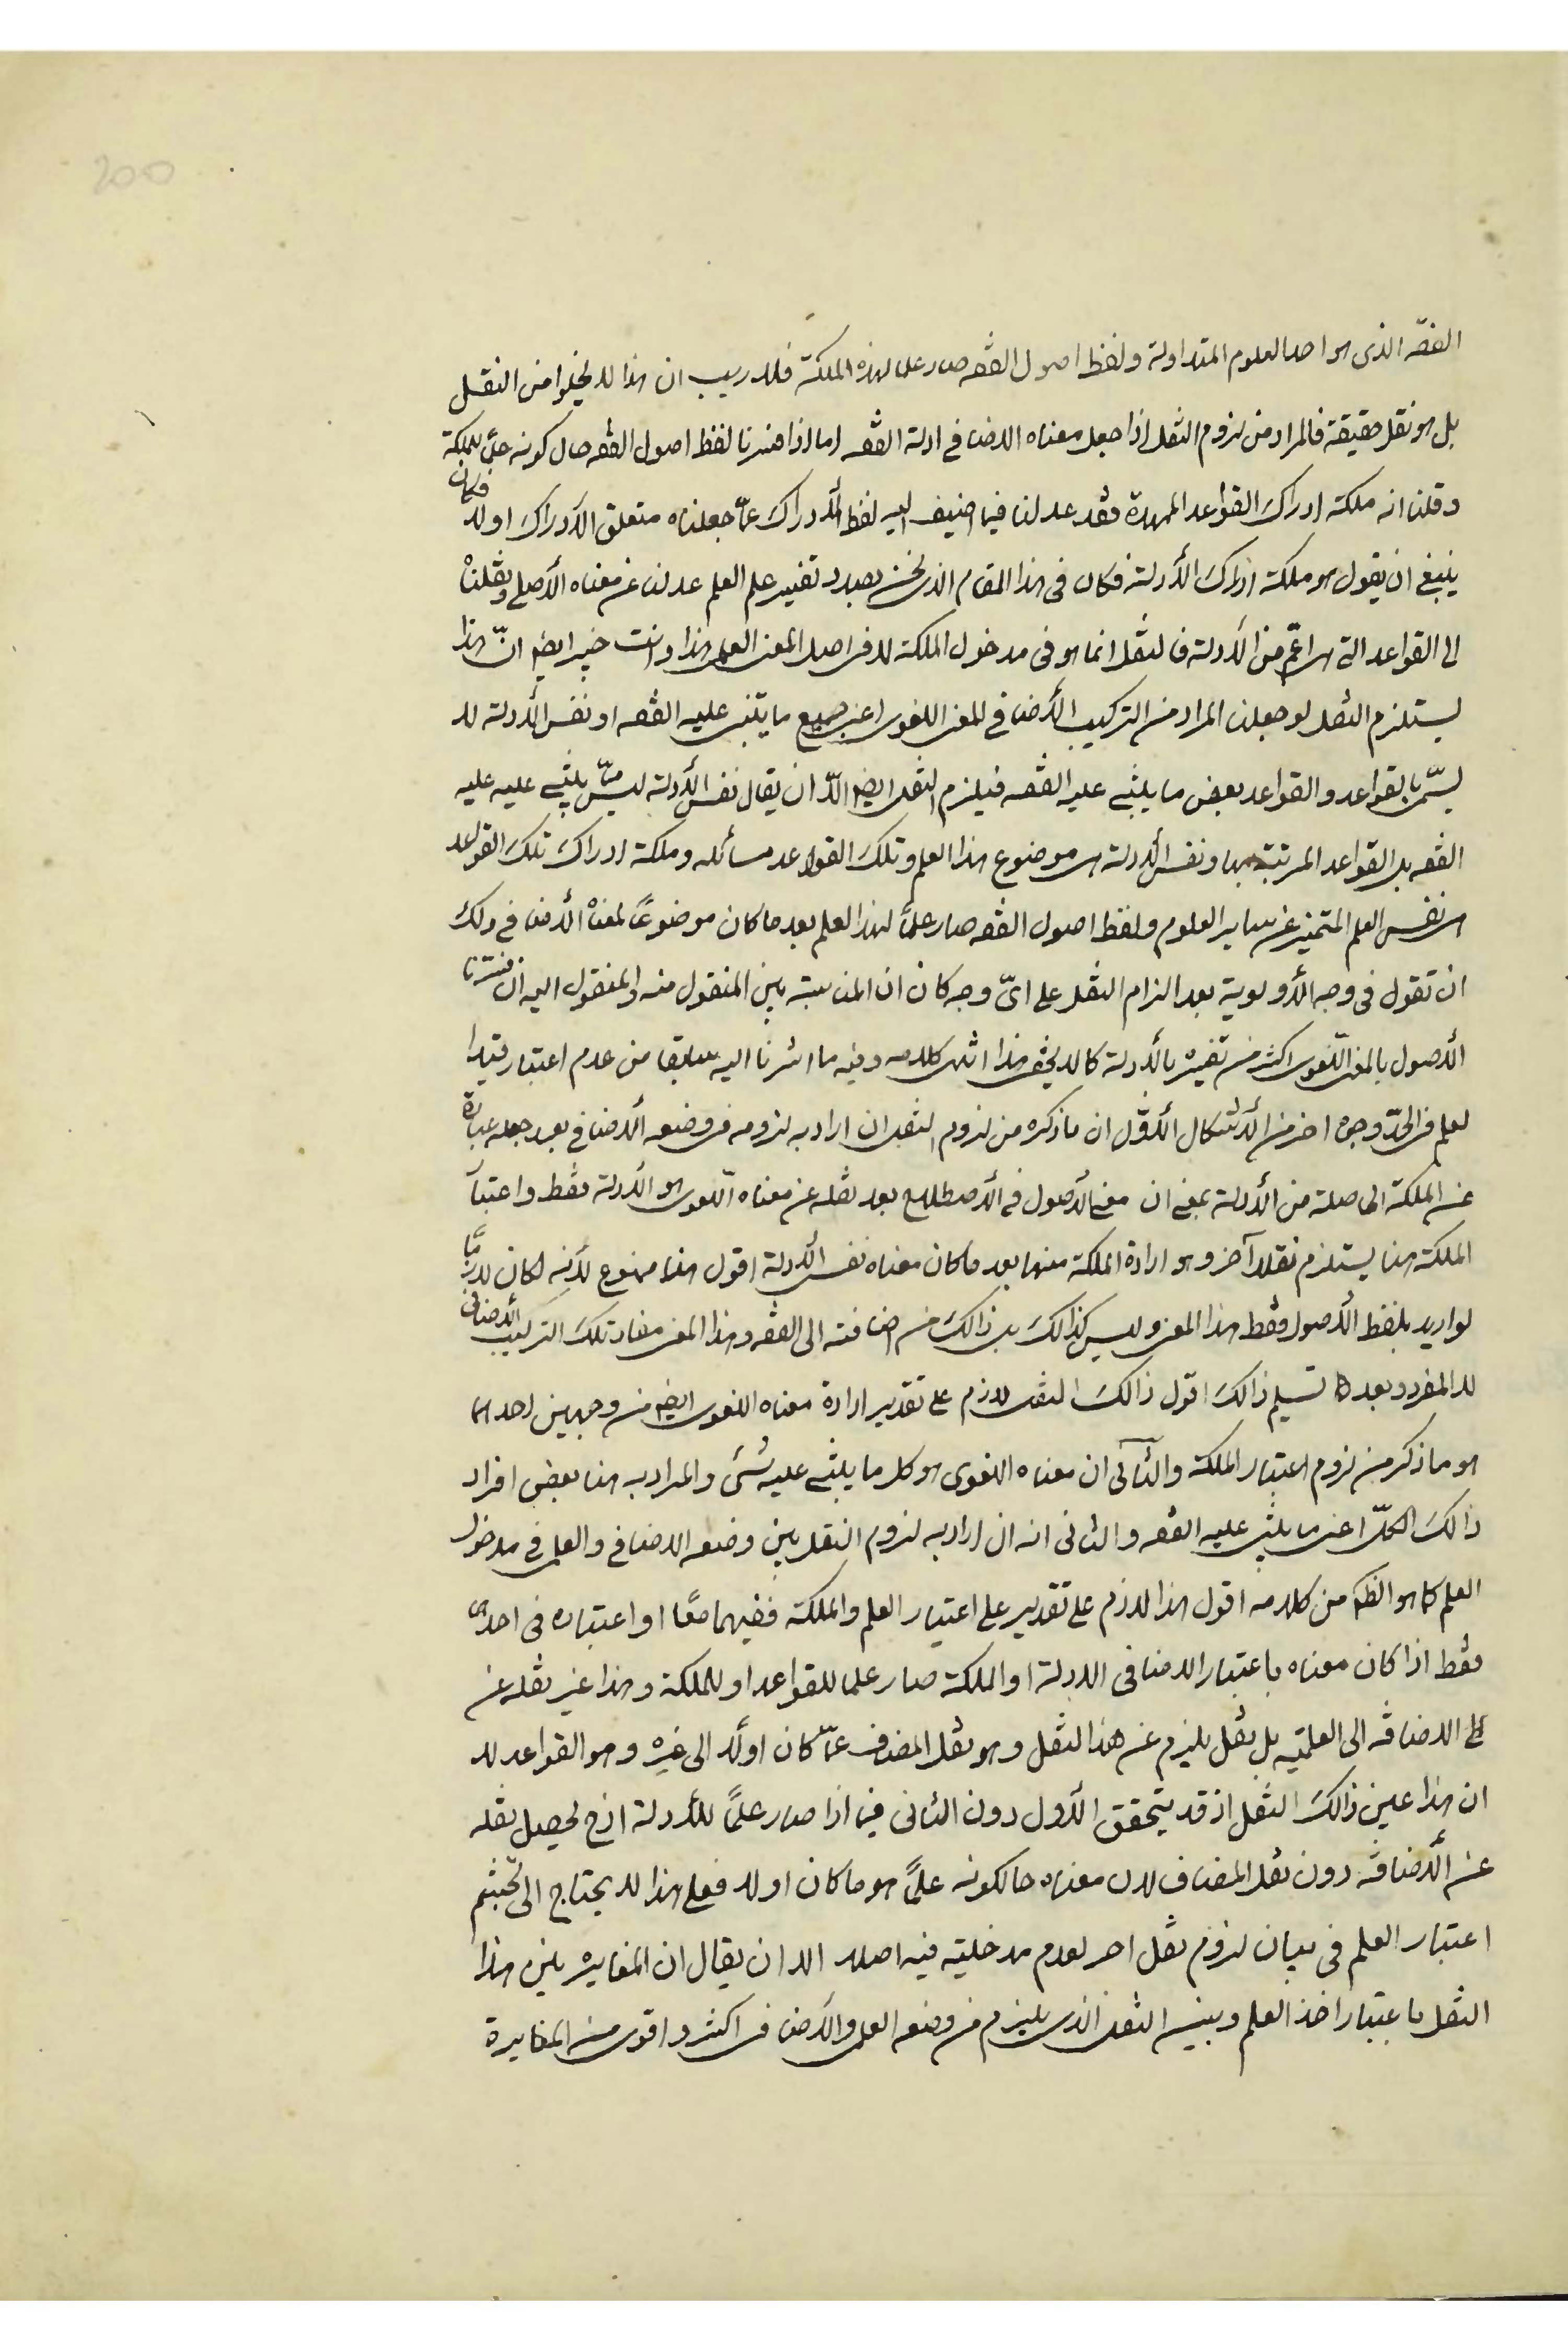 200
الفقه الذى هو احد العلوم المتداولة ولفظ اصول الفقه صار علما لهذه الملكة فلا ريب ان هذا لا يخلوا من النقل
بل هو نقل حقيقة فالمراد من لزوم النقل اذا جعل معناه الاضافى ادلة الفقه اما اذا فسرنا لفظ اصول الفقه حال كونه علما للملكة
وقلنا انه ملكة ادراك القواعد الممهدة فقد عدلنا فيما اضيف اليه لفظ الأدراك عمّا جعلناه متعلق الأدراك اولا فكان
ينبغى ان يقول هو ملكة ادراك الأدلة فكان فى هذا المقام الذى نحن بصدد تفسير علم العلم عدلنا عن معناه الأصلى ونقلناه
الى القواعد التى هى اعمّ من الأدلة فالنقل انما هو فى مدخول الملكة لا فى اصل المعنى العلمى هذا وانت خبير ايضا انّ هذا
يستلزم النقل لو جعلنا المراد من التركيب الأضافى المعنى اللغوى اعنى جميع ما يبتنى عليه الفقه او نفس الأدلة لا
يسمّى بالقواعد والقواعد بعض ما يبتنى عليه الفقه فيلزم النقل ايضا الّا ان يقال نفس الأدلة ليس ممّا يبتنى عليه عليه
الفقه بل القواعد المرتبة بها ونفس الأدلة هى موضوع هذا العلم وتلك القواعد مسائله وملكة ادراك تلك القواعد
هى نفس العلم المتميز عن ساير العلوم ولفظ اصول الفقه صار علمًا لهذا العلم بعد ما كان موضوعًا لمعناه الأضافى ولك
ان تقول فى وجه الأولوية بعد الزام النقل على اىّ وجه كان ان المناسبة بين المنقول منه والمنقول اليه ان فسّرنا
الأصول بالمعنى اللّغوى اكثر من تفسيره بالأدلة كما لا يخفى هذا انتهى كلامه وفيه ما اشرنا اليه سابقا من عدم اعتبار قيدا
لعلم فى الحدّ وجوه اخر من الأشكال الأوّل ان ما ذكره من لزوم النقل ان اراد به لزومه فى وضعه الأضافى بعد جعله عبارة
عن الملكة الحاصلة من الأدلة بمعنى ان معنى الأصول فى الأصطلاح بعد نقله عن معناه اللغوى هو الأدلة فقط واعتبار
الملكة هنا يستلزم نقلا آخر وهو ارادة الملكة منها بعد ما كان معناه نفس الأدلة اقول هذا ممنوع لأنه كان لازمًا
لو اريد بلفظ الأصول فقط هذا المعنى وليس كذالك بل ذالك من اضافته الى الفقه وهذا المعنى مفاد تلك التركيب الأضافى
لا المفرد وبعد تسليم ذالك اقول ذالك النقل لازم على تقدير ارادة معناه اللغوى ايضا من وجهين احدهما
هو ما ذكر من لزوم اعتبار الملكة والثانى ان معناه اللغوى هو كل ما يبتنى عليه شئ والمراد به هنا بعض افراد
ذالك الكلّ اعنى ما يبتنى عليه الفقه والثانى انه ان اراد به لزوم النقل بين وضعه الاضافى والعلمى فى مدخول
العلم كما هو الظ من كلامه اقول هذا لازم على تقدير على اعتبار العلم والملكة ففيهما معًا او اعتباره فى احدى
فقط اذا كان معناه باعتبار الاضافى الادلة او الملكة صار علما للقواعد او للملكة وهذا غير نقله عن
الاضافة الى العلمية بل نقل يلزم عن هذا النقل وهو نقل المضاف عمّا كان اولًا الى غيره وهو القواعد لا
ان هذا عين ذالك النقل اذ قد يتحقق الأول دون الثانى فيما اذا صار علمًا للأدلة اذح يحصل نقله
عن الأضافة دون نقل المضاف لان معناه حالكونه علمًا هو ما كان اولا فعلى هذا لا يحتاج الى تجشم
اعتبار العلم فى بيان لزوم نقل اخر لعدم مدخليته فيه اصلا الا ان يقال ان المغايرة بين هذا
النقل باعتبار اخذ العلم وبين النقل الذى يلزم من وضعه العلمى والأضافى اكثر واقوى من المغايرة